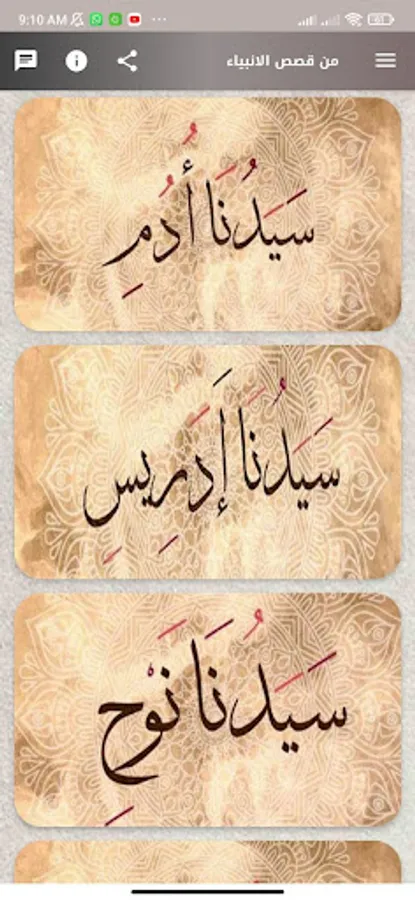 9:10 AM
من قصص الانبياء
سَيَدُنَا أُدُمِ
سَيَدُنَا إَدَرِيسِ
سَيَدُنَا نَوْحِ